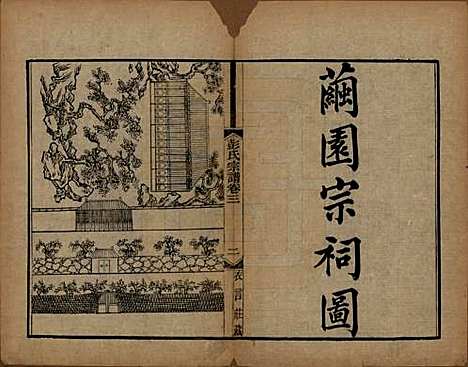 繭園宗祠圖
彭氏宗譜卷三
二
衣言莊藏